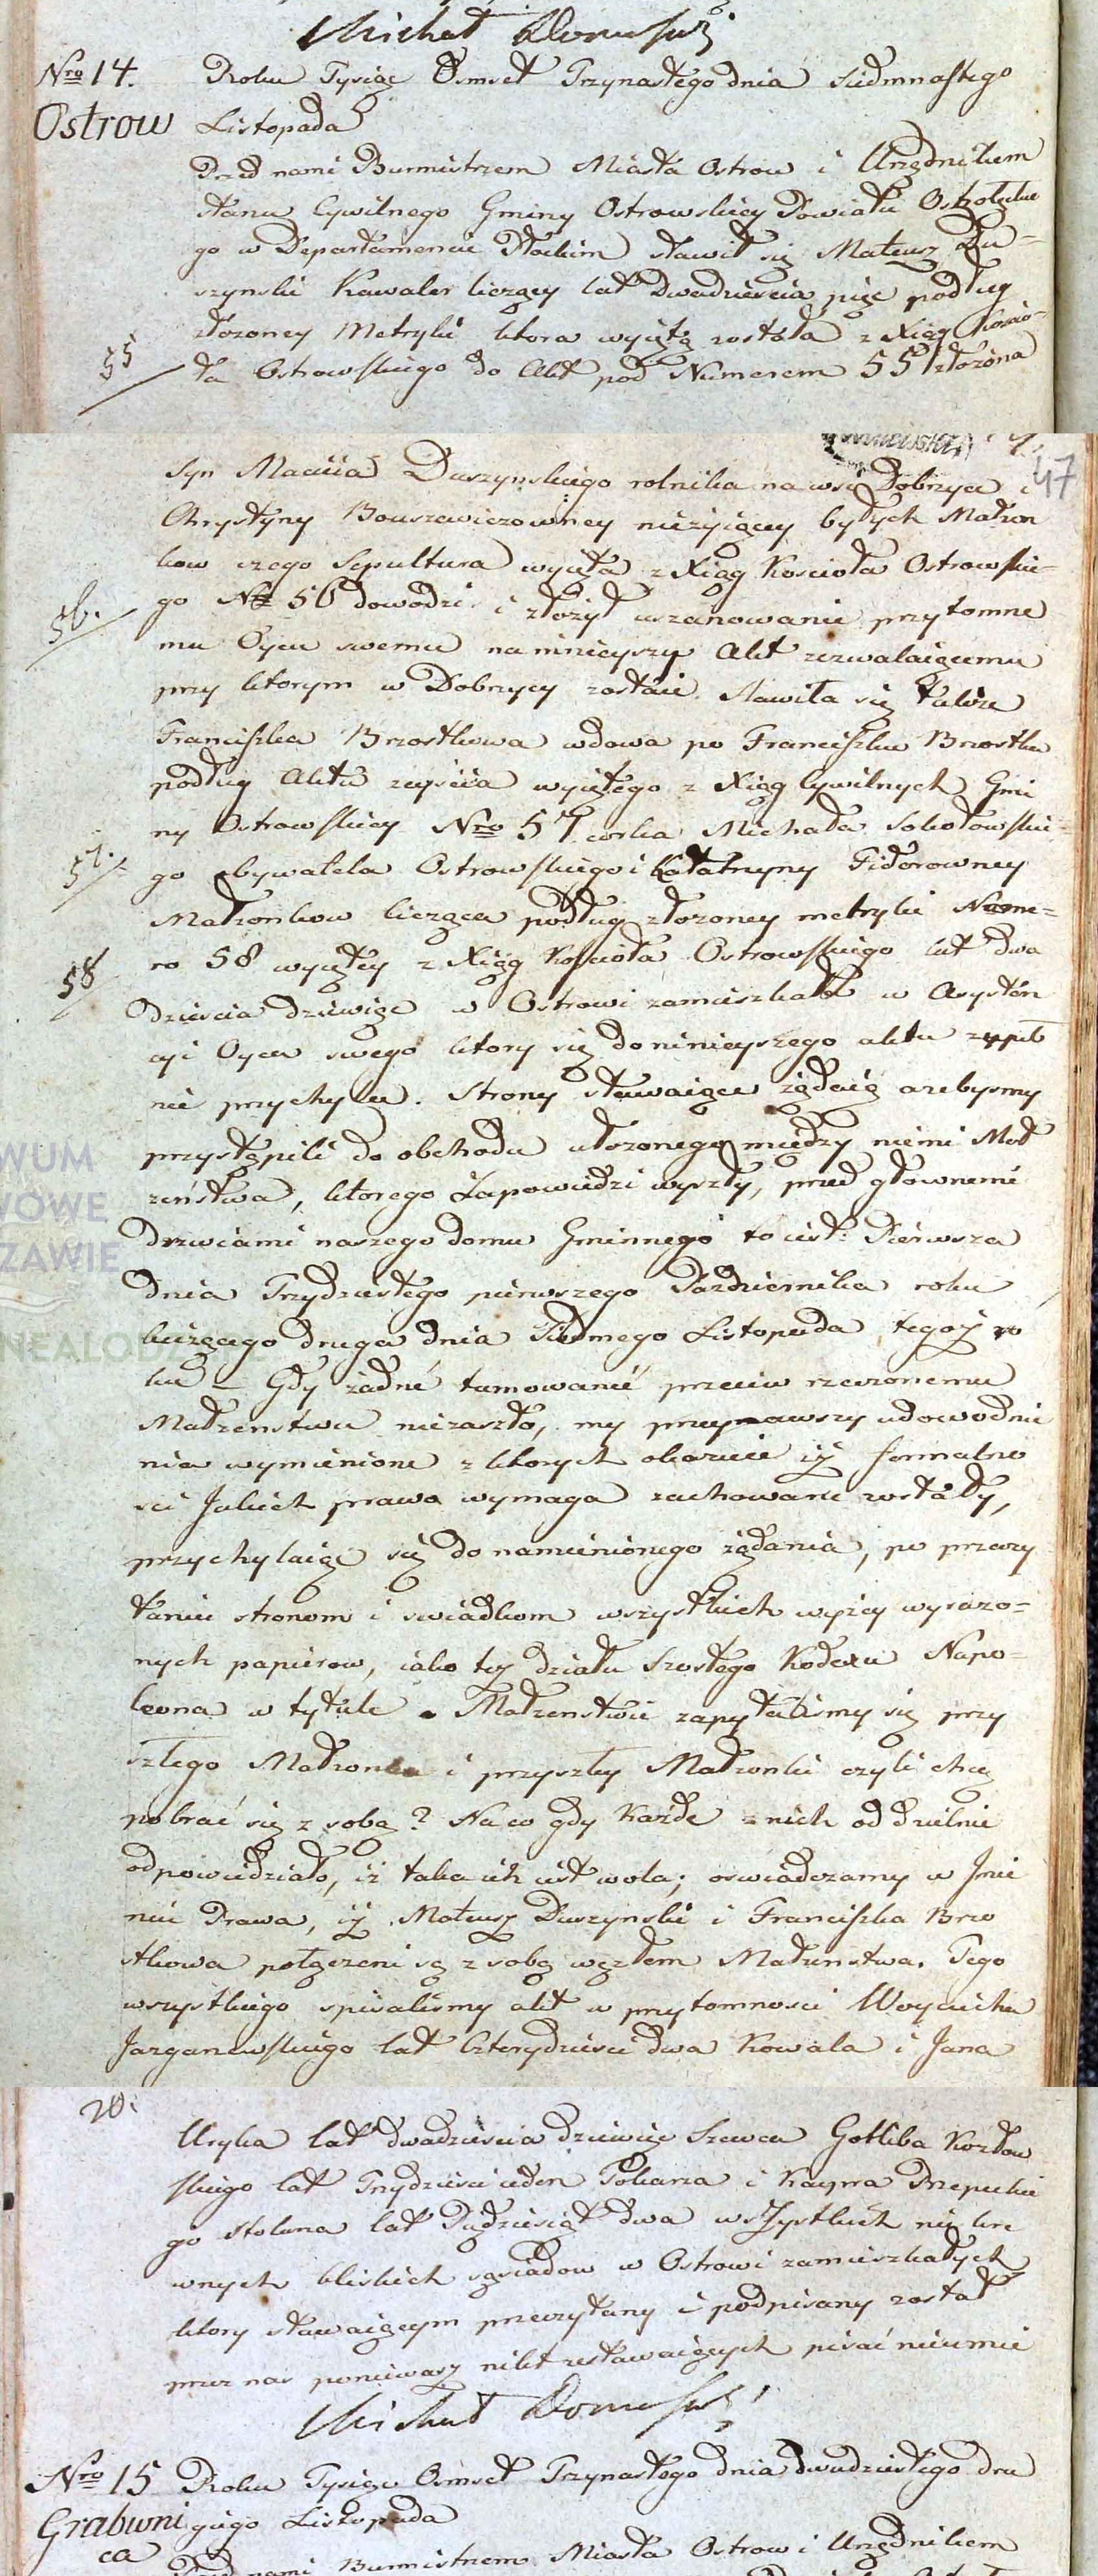 Michał
Nro 14. Roku Tysiąc Osmset Trzynastego dnia Siedmnastego
Ostrow Listopada
Przed nami Burmistrzem Miasta Ostrow i Urzędnikiem
stanu Cywilnego Gminy Ostrowskiey Powiatu Ostrołęckie
go w Departamencie Płockim stawił się Mateusz Du-
szynski Kawaler liczący lat Dwadziescia pięc podług
złozoney Metryki ktora wyięta została z Xiąg Koscio-
55 ła Ostrowskiego do Akt pod Numerem 55 złożona
47
Syn Macieia Duszynskiego rolnika na wsi Dobrzyca i
Chrystyny nieżyiącey byłych Małzon
kow czego Sepultura wyięta z Xiąg Koscioła Ostrowskie-
56. go No 56 dowodzi i złożył uszanowanie przytomne
mu Oycu swemu na mnieyszy Akt zezwalaiącemu
przy ktorym w Dobrzycy zostaie. Stawiła się takze
Franciszka Brzostkowa wdowa po Franciszku Brzostku
podług Aktu zeyscia wyiętego z Xiąg Cywilnych Gmi
57. ny Ostrowskiey Nro 57 corka Michała Sokołowskie-
go obywatela Ostrowskiego i Katarzyny Fidorowney
Małzonkow licząca podług złozoney metryki Nume-
58 ro 58 wyiętey z Xiąg Koscioła Ostrowskiego lat dwa
dziescia dziewięc w Ostrowi zamieszkała w Asysten
cyi Oyca swego ktory się do ninieyszego aktu zupeł
nie przychyla. Strony stawaiące żądaią azebysmy
przystąpili do obchodu ułozonego między niemi Mał
zeństwa, ktorego Zapowiedzi wyszły, przed głownemi
drzwiami naszego domu Gminnego to iest: Pierwsza
dnia Trzydziestego pierwszego Pazdziernika roku
bieżącego druga dnia Siedmego Listopada tegoż ro
ku – Gdy żadne tamowanie przeciw rzeczonemu
Małzenstwu niezaszło, my przyiąwszy udowodnie
nia wymienione z ktorych okazuie iż formalno
sci Jakich prawo wymaga zachowane zostały,
przychylaiąc się do namienionego żądania, po przeczy
taniu stronom i swiadkom wszystkich wyżey wyrazo-
nych papierow, iako też działu Szostego Kodexu Napo-
leona w tytule o Małzenstwie zapytaliśmy się przy
szłego Małzonka i przyszłey Małzonki czyli chcą
pobrać się z sobą? Na co gdy Każde z nich oddzielnie
odpowiedziało, iż taka ich iest wola; oswiadczamy w Jmie
niu Prawa, iż Mateusz Duszynski i Franciszka Brzo
stkowa połączeni są z sobą węzłem Małzenstwa. Tego
wszystkiego spisalismy akt w przytomnosci Woyciecha
Jarzanowskiego lat Czterydziesci dwa Kowala i Jana
Uryka lat dwadziescia dziewięc Szewca Gotliba Kozłow
skiego lat Trzydziesci ieden Tokarza i Kacpra
go Stolarza lat Piędziesiąt dwa wszystkich nie kre
wnych bliskich sąsiadow w Ostrowi zamieszkałych
ktory stawaiącym przeczytany i podpisany został
przez nas poniewasz nikt zestawaiących pisać nieumie
Michał
Nro 15 Roku Tysiąc Osmset Trzynastego dnia dwudziestego dru
Grabowni giego Listopada
ca Przed nami Burmistrzem Miasta Ostrow i Urzędnikiem